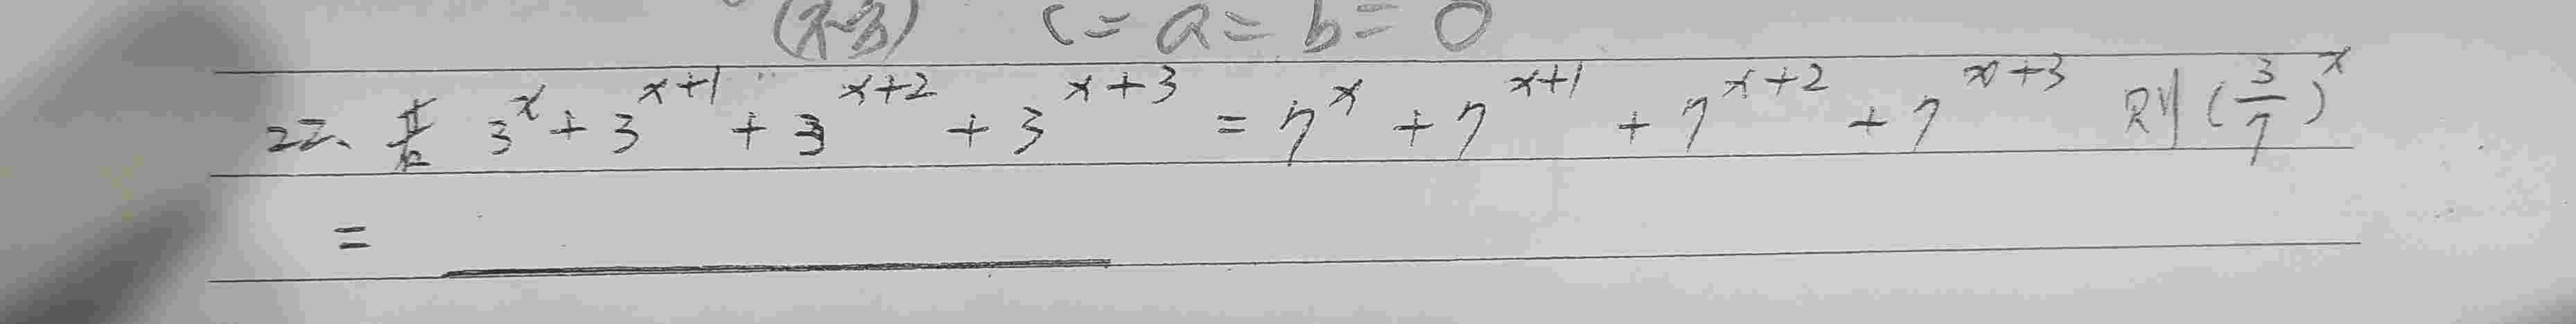 c = a = b = 0
22、若 3^x + 3^{x+1} + 3^{x+2} + 3^{x+3} = 7^x + 7^{x+1} + 7^{x+2} + 7^{x+3} 则 (3/7)^x
= ________